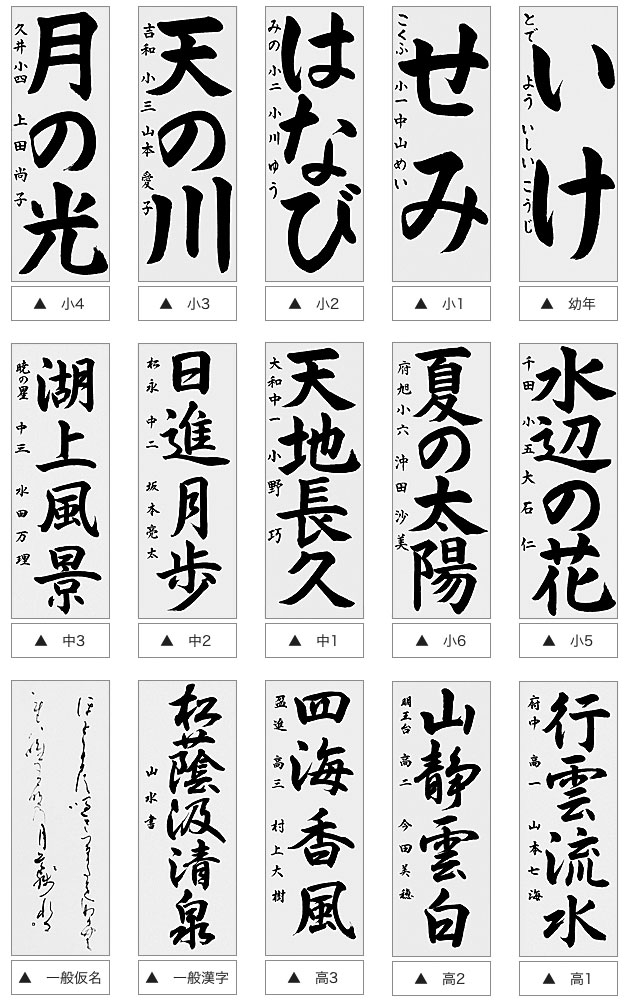 いけ
とでよう いしいこうじ
▲ 幼年
せみ
こくふ 小一 中山めい
▲ 小1
はなび
みの 小二 小川ゆう
▲ 小2
天の川
吉和 小三 山本愛子
▲ 小3
月の光
久井 小四 上田尚子
▲ 小4
水辺の花
千田 小五 大石仁
▲ 小5
夏の太陽
府旭 小六 沖田沙美
▲ 小6
天地長久
大和 中一 小野巧
▲ 中1
日進月歩
松永 中二 坂本亮太
▲ 中2
湖上風景
暁の星 中三 水田万理
▲ 中3
行雲流水
府中 高一 山本七海
▲ 高1
山静雲白
明王台 高二 今田美穂
▲ 高2
四海香風
盈進 高三 村上大樹
▲ 高3
松蔭汲清泉
山水書
▲ 一般漢字
▲ 一般仮名